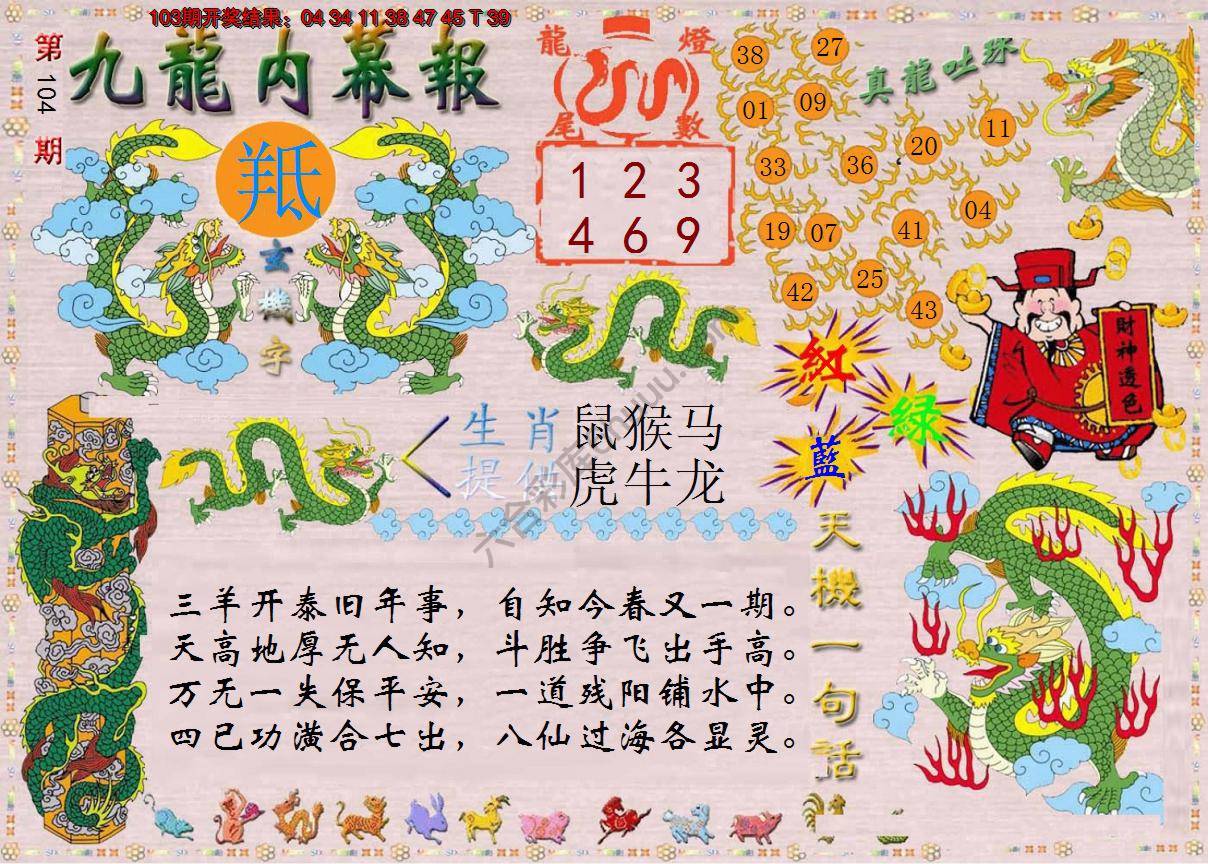 103期开奖结果：04 34 11 38 47 45 T 39
第104期
九龍内幕報
羝
玄機字
龍燈
尾數
1 2 3
4 6 9
38 27
01 09
33 36 20 11
19 07 41 04
42 25 43
真龍吐珠
財神透色
紅
綠
藍
生肖提供
鼠猴马
虎牛龙
三羊开泰旧年事，自知今春又一期。
天高地厚无人知，斗胜争飞出手高。
万无一失保平安，一道残阳铺水中。
四已功潢合七出，八仙过海各显灵。
天機一句話